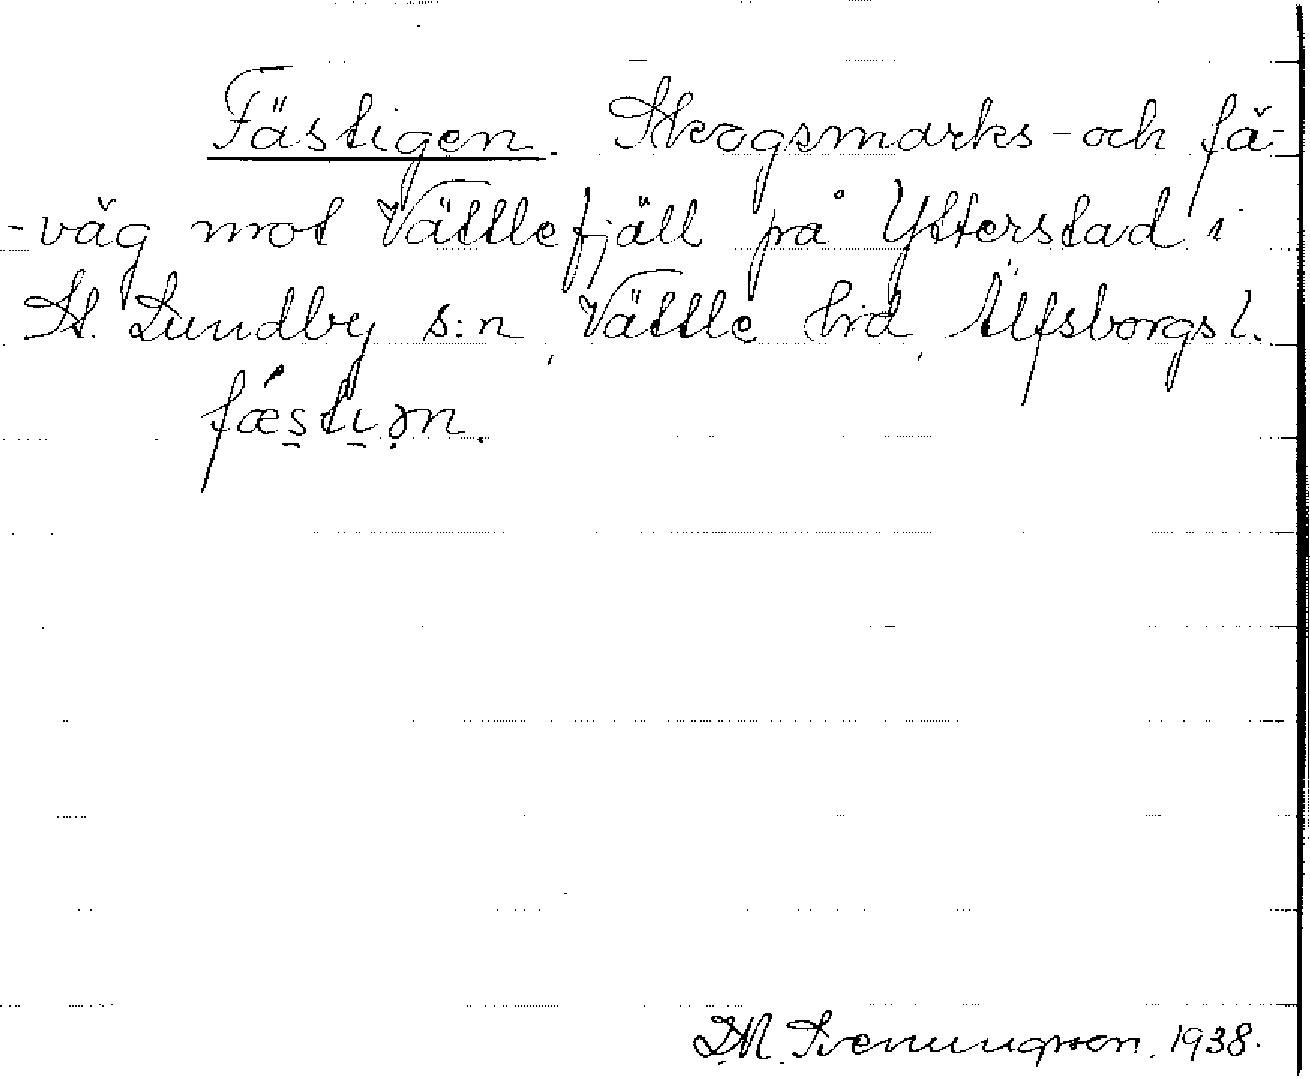 Fästigen. Skogsmarks- och fä-
-väg mot Vättlefjäll på Ytterstad i
St. Lundby s:n, Vättle hrd, Älfsborgs l.
fæ´s̠tı̠ə̣n.
D.M. Svenungsson. 1938.